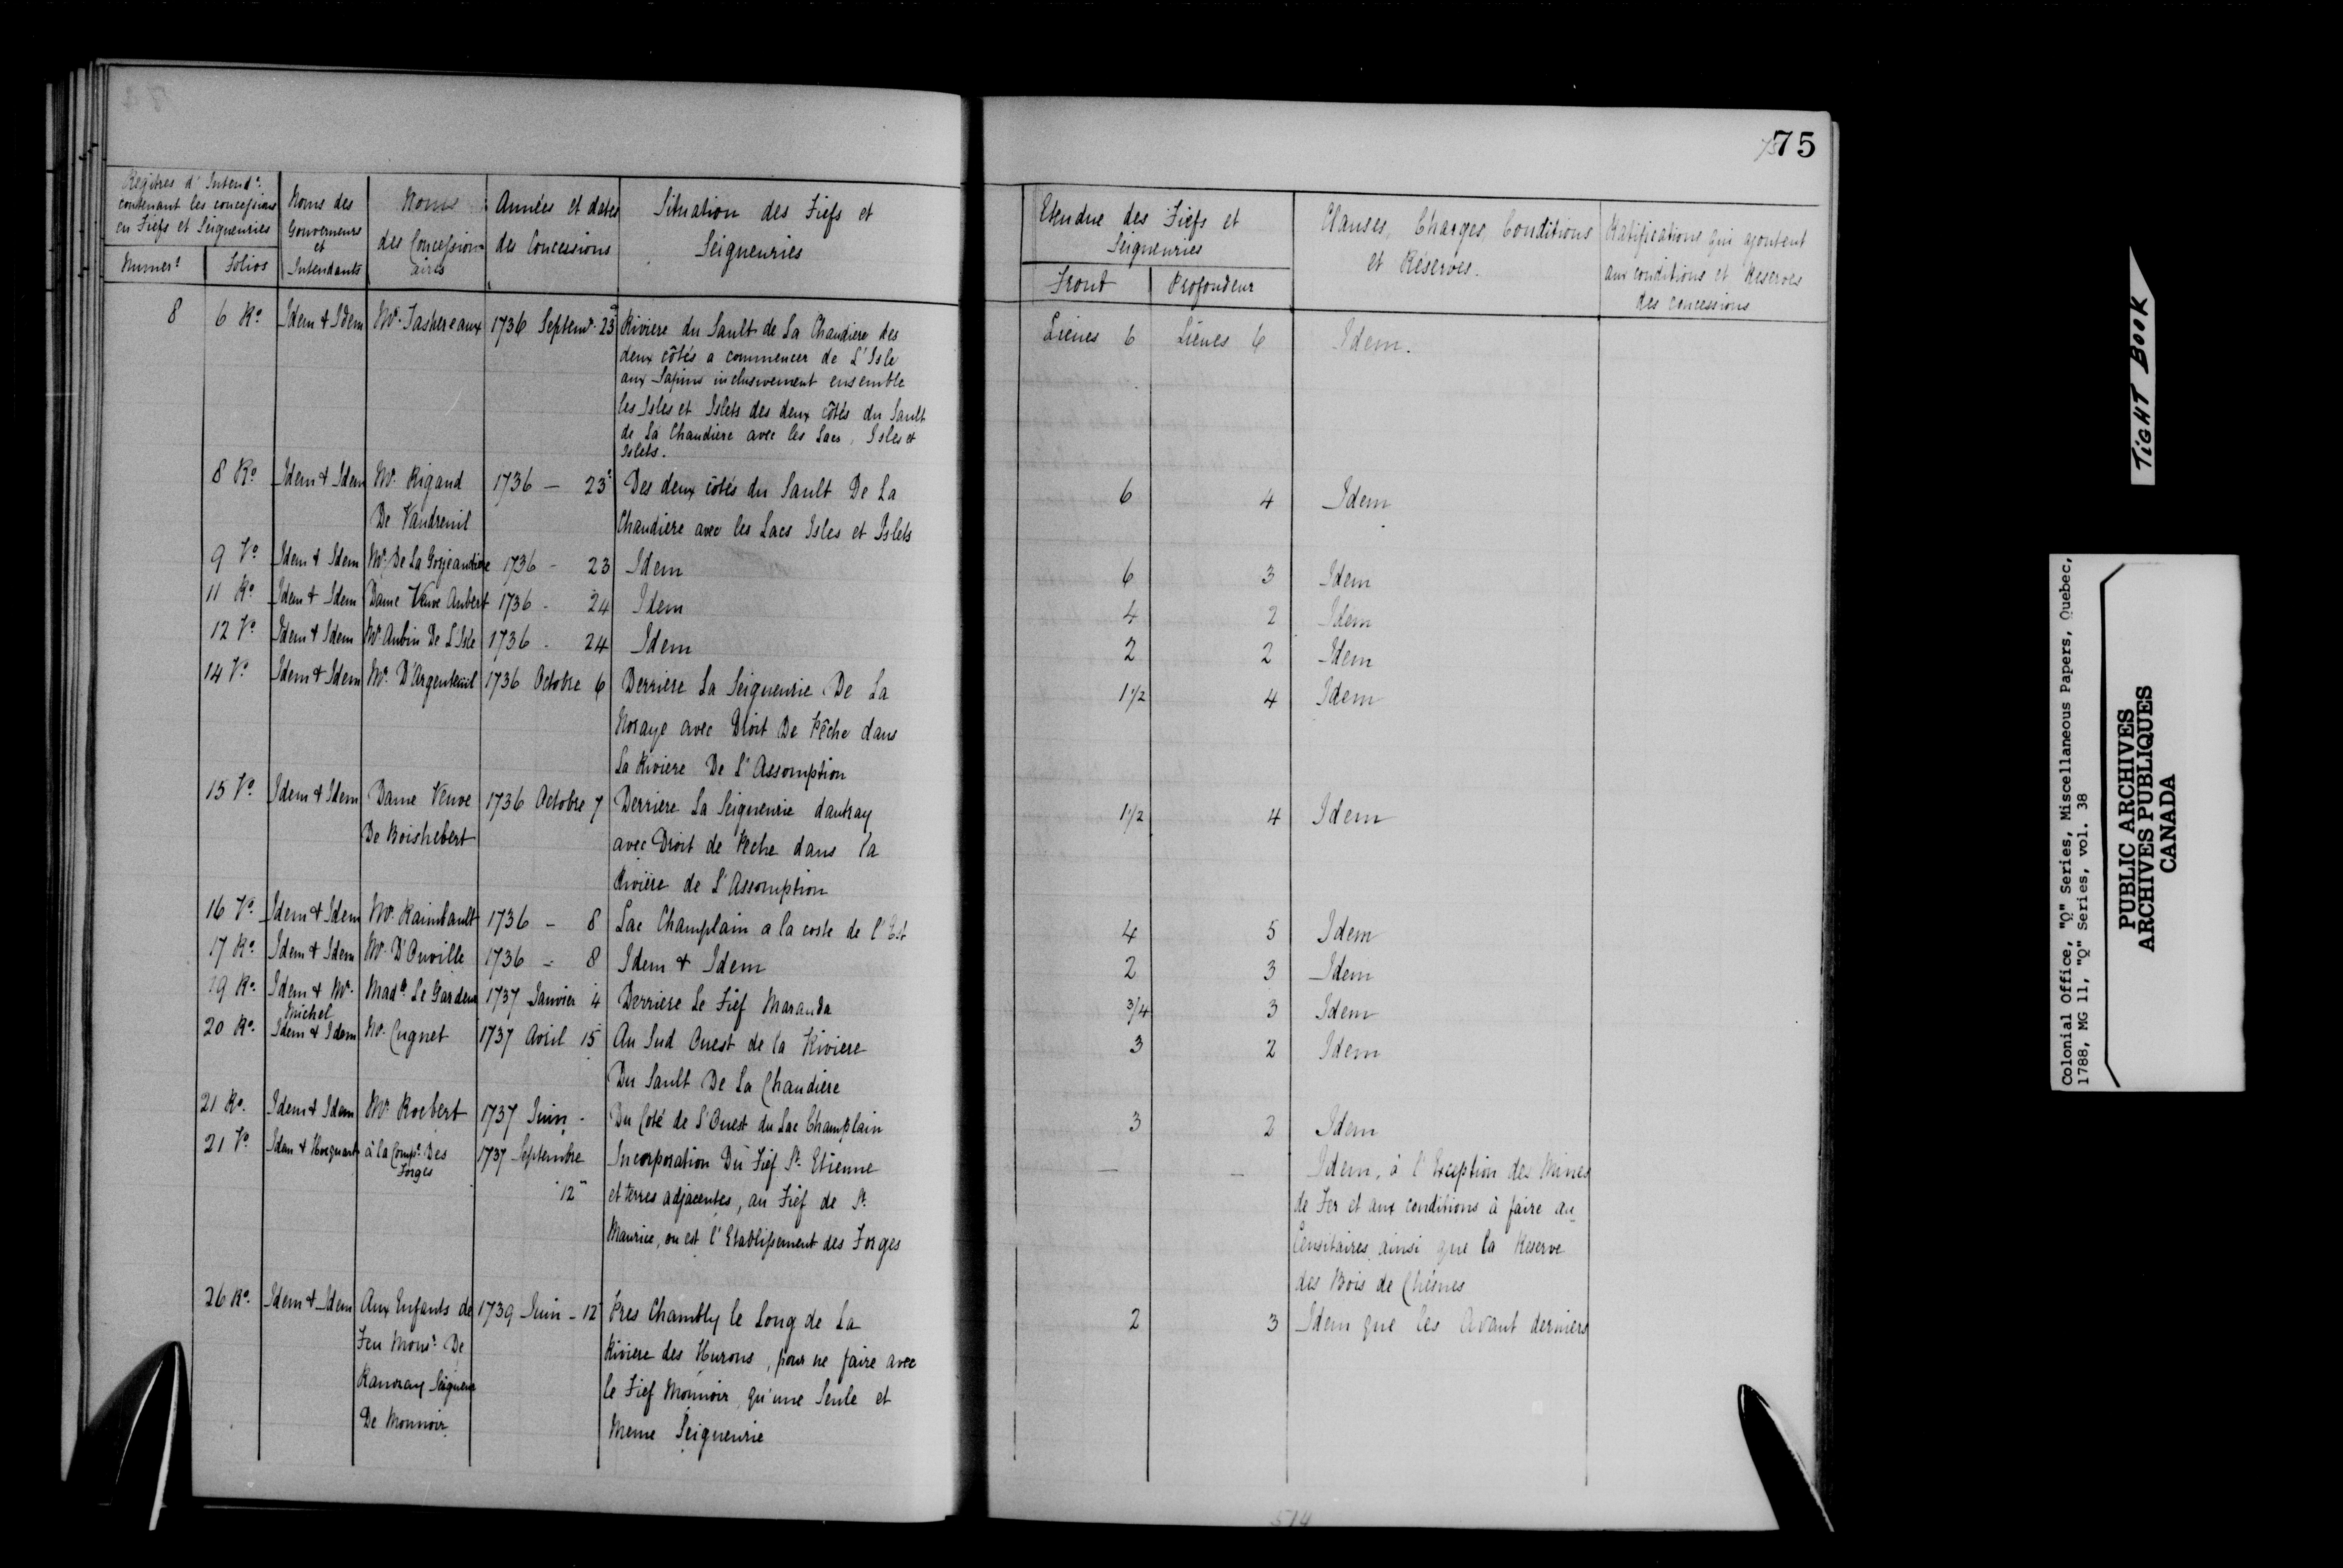 75
Regitres d'Intend.ce contenant les concessions en Fiefs et Seigneuries
Numer.s
Folios
Noms des Gouverneurs et Intendants
Noms des Concessionaires
Années et dates des Concessions
Situation des Fiefs et Seigneuries
Etendue des Fiefs et Seigneuries
Front
Profondeur
Clauses, Charges, Conditions et Réserves.
Ratifications qui ajoutent aux conditions et Reserves des concessions
8 6 Ro. Idem & Idem Mr. Tashereaux 1736 Septem. 23 Riviere du Sault de La Chaudiere des Lieues 6 Lieues 6 Idem.
deux côtés a commencer de L'Isle
aux Sapins inclusivement ensemble
les Isles et Islets des deux côtés du Sault
de La Chaudiere avec les Lacs, Isles et
Islets.
8 Ro. Idem & Idem Mr. Rigaud 1736 — 23 Des deux côtés du Sault De La 6 4 Idem
De Vaudreuil Chaudiere avec les Lacs Isles et Islets
9 Vo. Idem & Idem Mr. De La Gorjeandiere 1736 - 23 Idem 6 3 Idem
11 Ro. Idem & Idem Dame Veuve Aubert 1736 - 24 Idem 4 2 Idem
12 Vo. Idem & Idem Mr. Aubin De L'Isle 1736 - 24 Idem 2 2 Idem
14 Vo. Idem & Idem Mr. D'Argenteuil 1736 Octobre 6 Derriere La Seigneurie De La 1 1/2 4 Idem
Noraye avec Droit De Pêche dans
La Riviere De L'Assomption
15 Vo. Idem & Idem Dame Veuve 1736 Octobre 7 Derriere La Seigneurie dautray 1 1/2 4 Idem
De Boishebert avec Droit de Peche dans la
Riviere de L'Assomption
16 Vo. Idem & Idem Mr. Raimbault 1736 - 8 Lac Champlain a la coste de l'Est 4 5 Idem
17 Ro. Idem & Idem Mr. D'Ouville 1736 - 8 Idem & Idem 2 3 Idem
19 Ro. Idem & Mr. Michel Mad.e Le Gardeur 1737 Janvier 4 Derriere Le Fief Maranda 3/4 3 Idem
20 Ro. Idem & Idem Mr. Cugnet 1737 Avril 15 Au Sud Ouest de la Riviere 3 2 Idem
Du Sault De La Chaudiere
21 Ro. Idem & Idem Mr. Roebert 1737 Juin - Du Coté de L'Ouest du Lac Champlain 3 2 Idem
21 Vo. Idem & Hocquart à la Comp.e Des Forges 1737 Septembre 12 Incorporation Du Fief St. Etienne — — Idem, à l'Exception des Mines
et terres adjacentes, au Fief de St. de Fer et aux conditions à faire au
Maurice, ou est l'Etablissement des Forges Censitaires ainsi que la Reserve
des Bois de Chesnes
26 Ro. Idem & Idem Aux Enfants de 1739 Juin - 12 Pres Chambly le Long de La 2 3 Idem que les Avant derniers
Feu Mons.r De Riviere des Hurons, pour ne faire avec
Ramzay Seigneur le Fief Monnoir, qu'une Seule et
De Monnoir Meme Seigneurie
514
TIGHT BOOK
Colonial Office, "Q" Series, Miscellaneous Papers, Quebec,
1788, MG 11, "Q" Series, vol. 38
PUBLIC ARCHIVES
ARCHIVES PUBLIQUES
CANADA